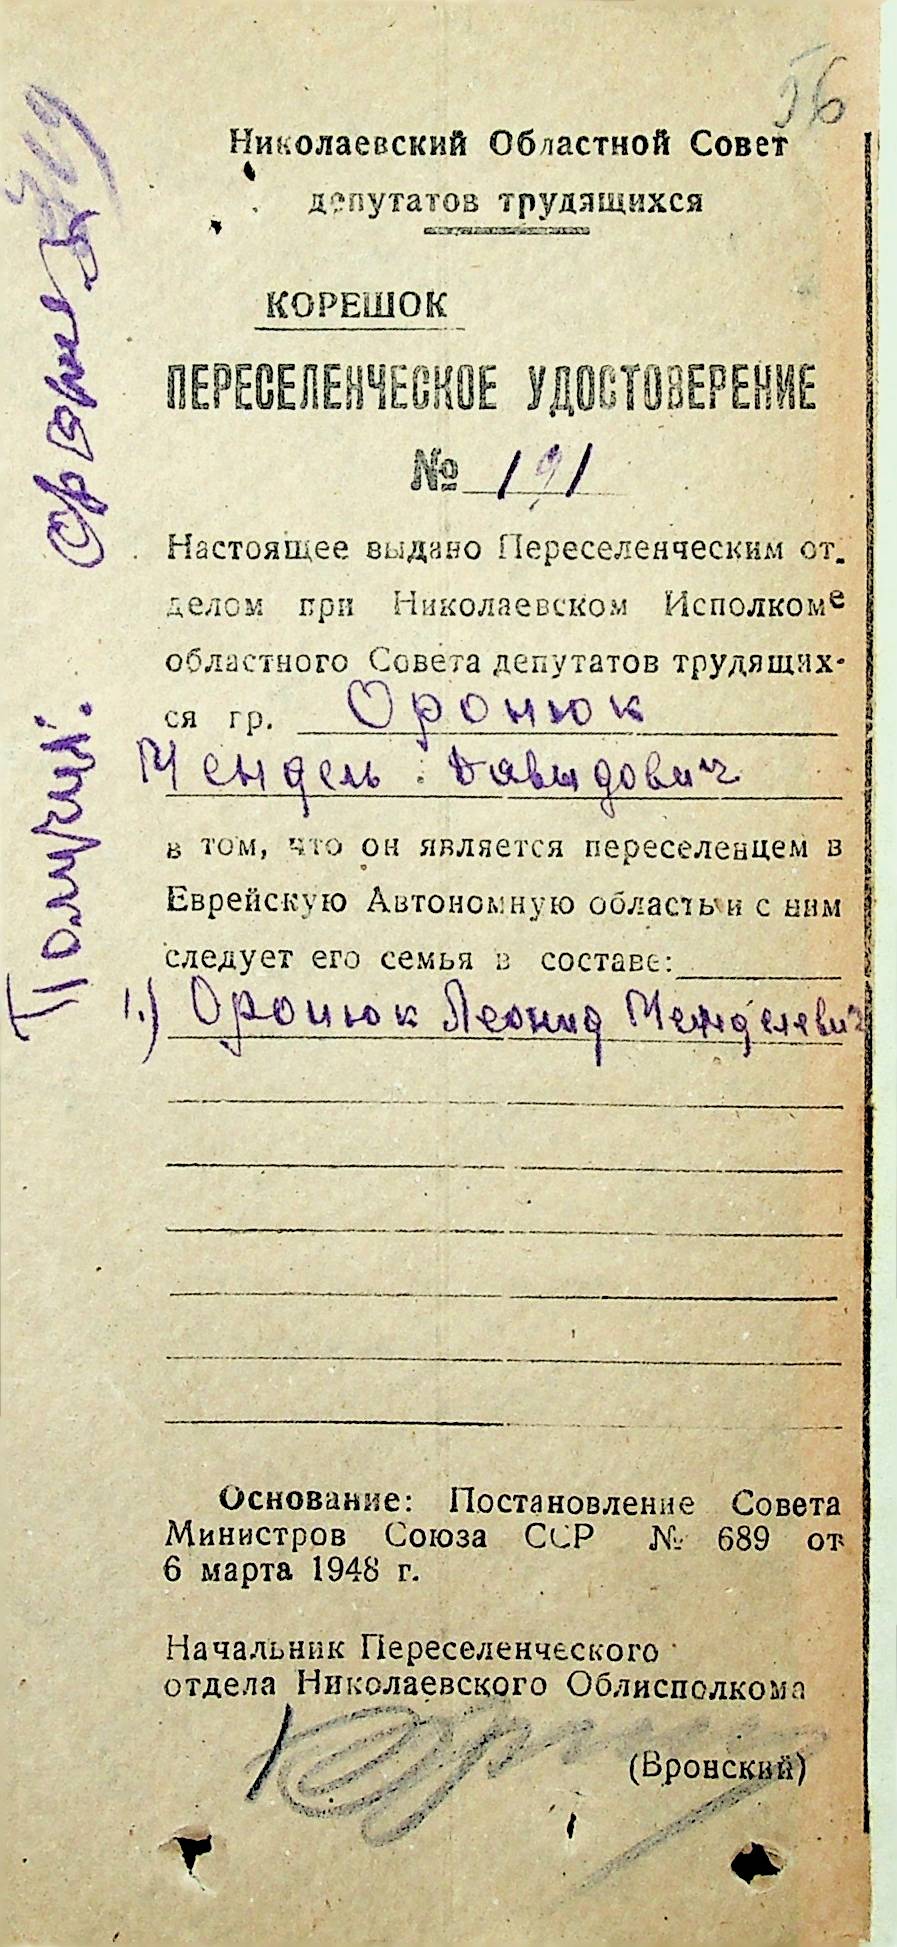 56
Николаевский Областной Совет
депутатов трудящихся
КОРЕШОК
ПЕРЕСЕЛЕНЧЕСКОЕ УДОСТОВЕРЕНИЕ
№ 191
Настоящее выдано Переселенческим от-
делом при Николаевском Исполкоме
областного Совета депутатов трудящих-
ся гр. Оронюк
Мендель Давидович
в том, что он является переселенцем в
Еврейскую Автономную область и с ним
следует его семья в составе:
1.) Оронюк Леонид Менделевич
Основание: Постановление Совета
Министров Союза ССР № 689 от
6 марта 1948 г.
Начальник Переселенческого
отдела Николаевского Облисполкома
(Вронский)
Получил: